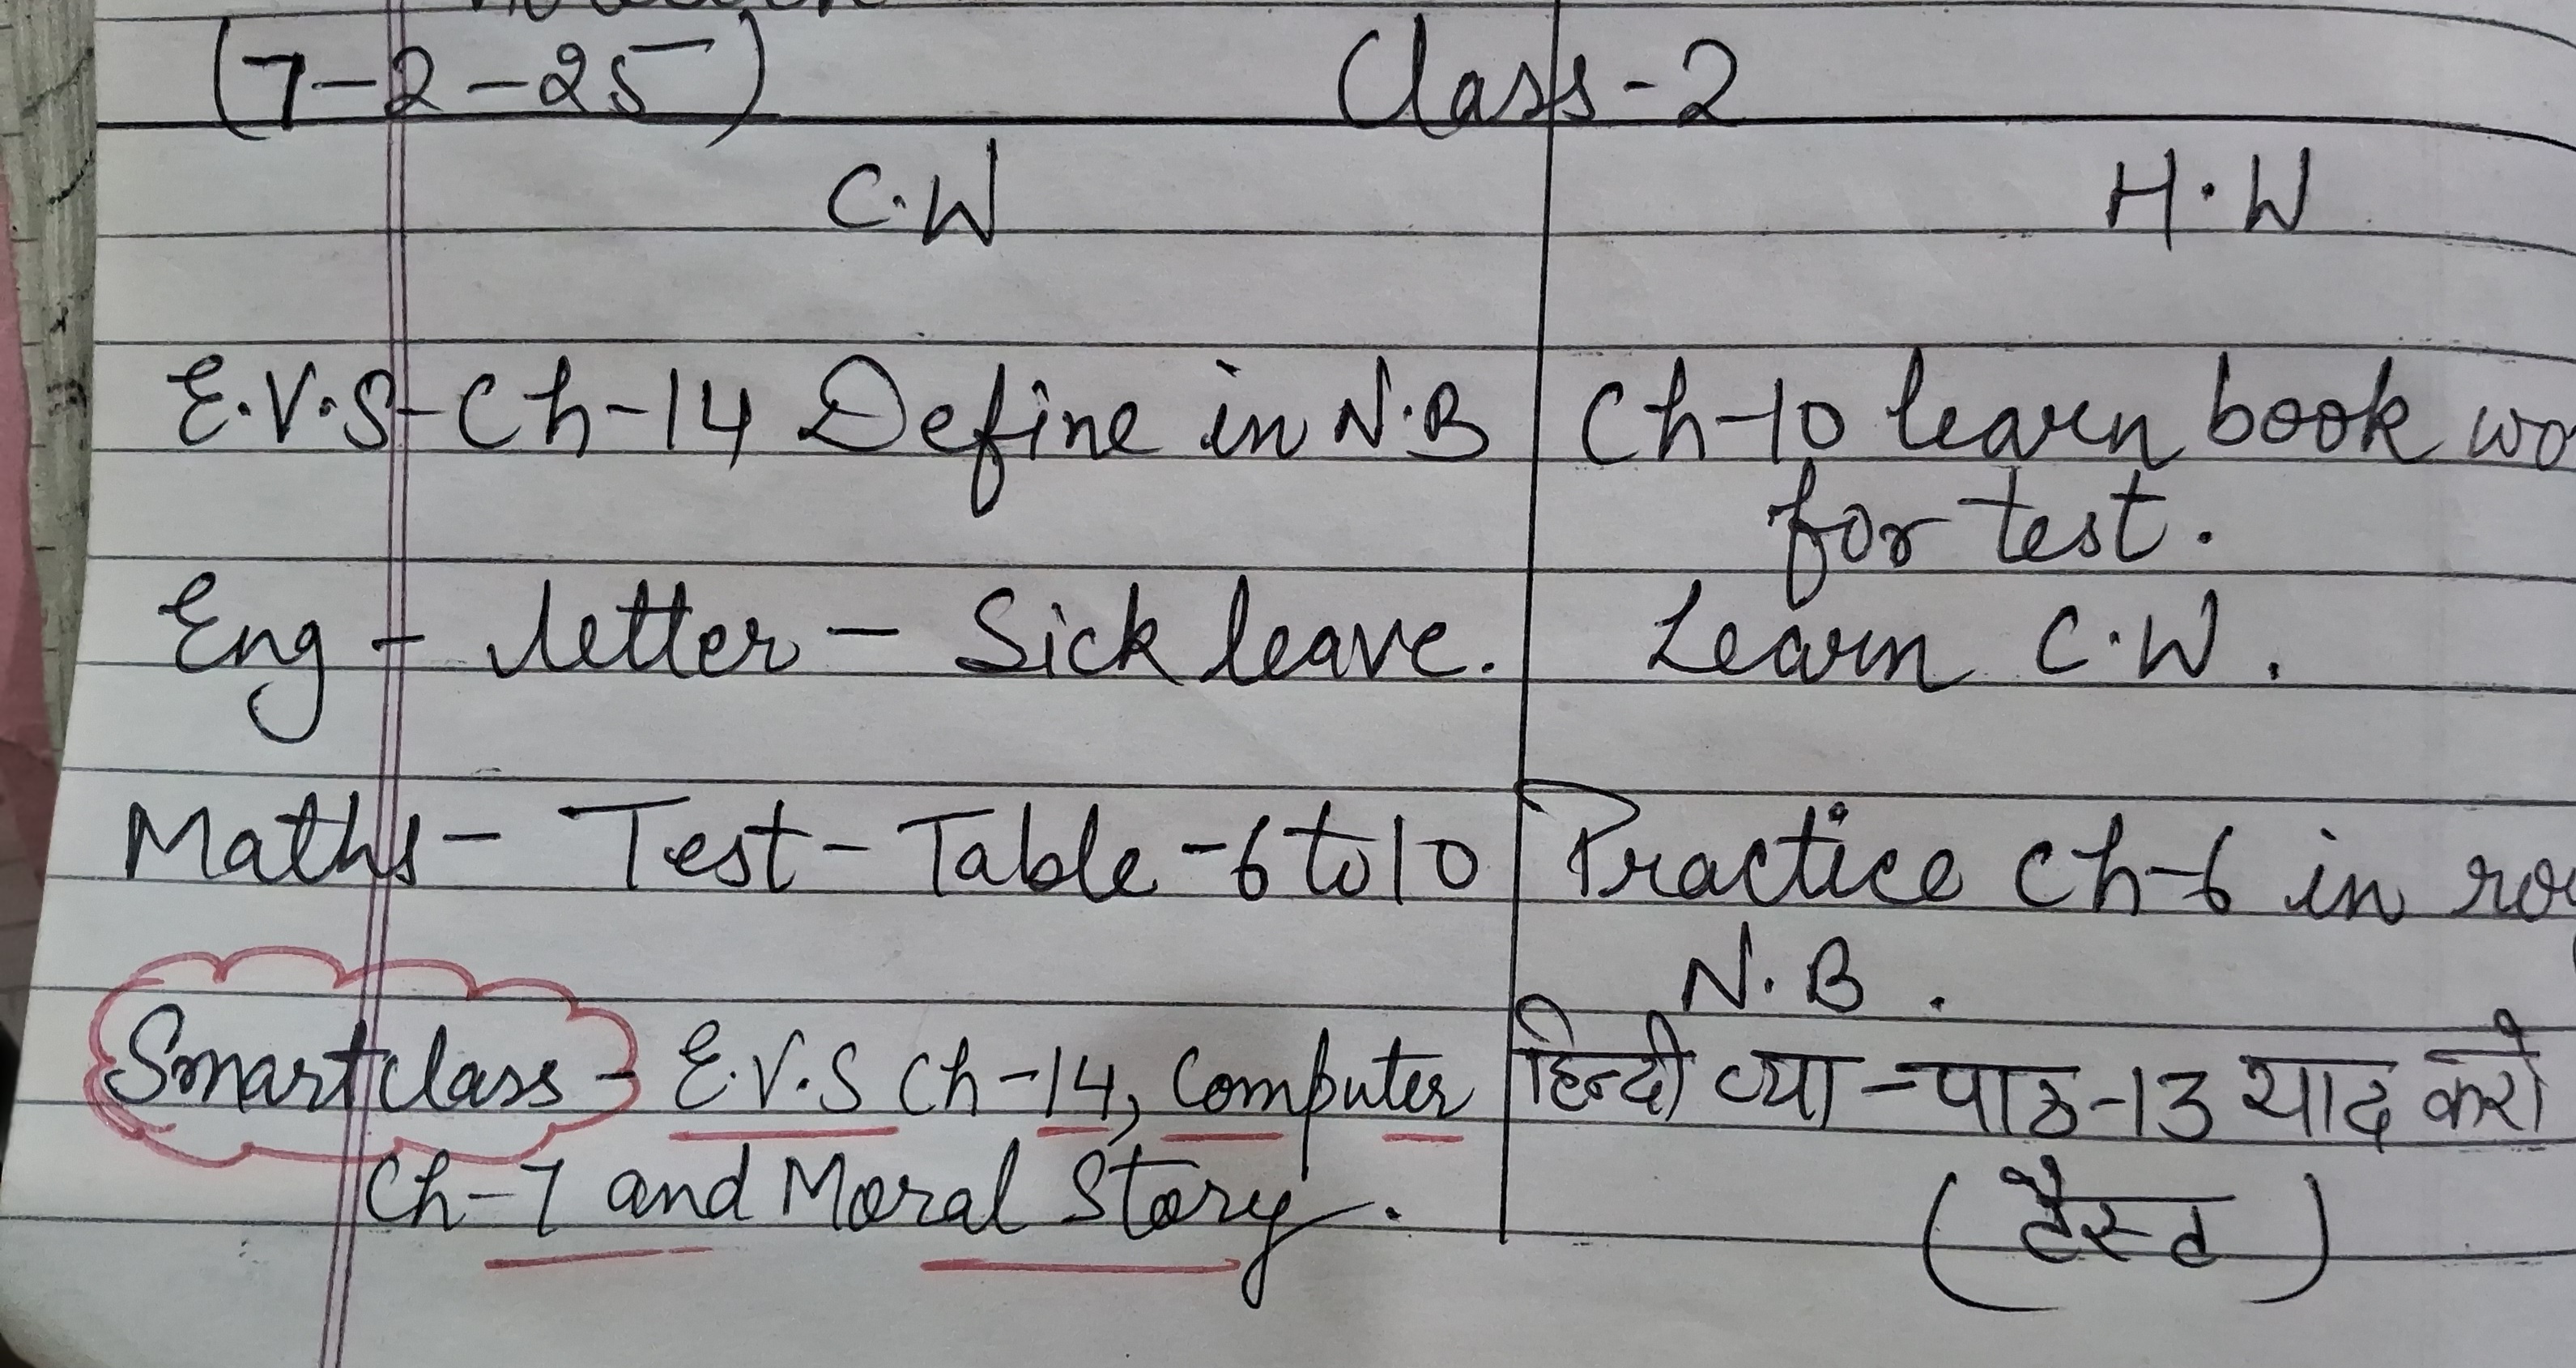 (7-2-25) Class-2
C.W H.W
E.V.S-Ch-14 Define in N.B Ch-10 learn book
for test.
Eng - letter - Sick leave. Learn C.W.
Maths - Test - Table - 6 to 10 Practice Ch-6 in
N.B.
Smart class - E.V.S Ch-14, Computer हिन्दी व्या - पाठ-13 याद करो
Ch-7 and Moral Story. (टैस्ट)